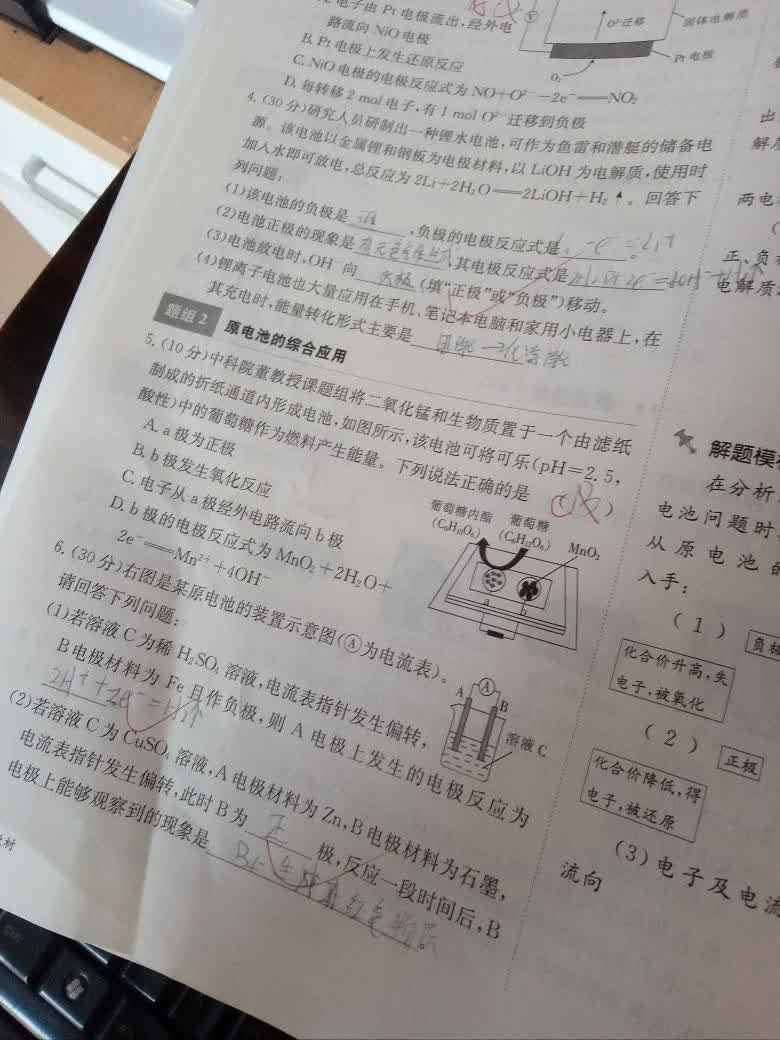 电子由 Pt 电极流出,经外电
路流向 NiO 电极
B. Pt 电极上发生还原反应
C. NiO 电极的电极反应式为 NO+O²⁻-2e⁻══NO₂
D. 每转移 2 mol 电子,有 1 mol O²⁻ 迁移到负极
O²⁻迁移
固体电解质
Pt 电极
O₂
4. (30 分)研究人员研制出一种锂水电池,可作为鱼雷和潜艇的储备电
源。该电池以金属锂和钢板为电极材料,以 LiOH 为电解质,使用时
加入水即可放电,总反应为 2Li+2H₂O══2LiOH+H₂↑。回答下
列问题:
(1)该电池的负极是 ,负极的电极反应式是 。
(2)电池正极的现象是 ,其电极反应式是
(3)电池放电时,OH⁻向 负极 (填“正极”或“负极”)移动。
(4)锂离子电池也大量应用在手机、笔记本电脑和家用小电器上,在
其充电时,能量转化形式主要是
题组 2 原电池的综合应用
5. (10 分)中科院董教授课题组将二氧化锰和生物质置于一个由滤纸
制成的折纸通道内形成电池,如图所示,该电池可将可乐(pH=2.5,
酸性)中的葡萄糖作为燃料产生能量。下列说法正确的是 ( )
A. a 极为正极
B. b 极发生氧化反应
C. 电子从 a 极经外电路流向 b 极
D. b 极的电极反应式为 MnO₂+2H₂O+
2e⁻══Mn²⁺+4OH⁻
葡萄糖内酯 葡萄糖
(C₆H₁₀O₆) (C₆H₁₂O₆) MnO₂
a b
6. (30 分)右图是某原电池的装置示意图(Ⓐ为电流表)。
请回答下列问题:
(1)若溶液 C 为稀 H₂SO₄ 溶液,电流表指针发生偏转,
B 电极材料为 Fe 且作负极,则 A 电极上发生的电极反应为
2H⁺+2e⁻=H₂↑
A A B
溶液 C
(2)若溶液 C 为 CuSO₄ 溶液,A 电极材料为 Zn,B 电极材料为石墨,
电流表指针发生偏转,此时 B 为 正 极,反应一段时间后,B
电极上能够观察到的现象是 。
出
解质
两电
正、负
电解质
解题模
在分析
电池问题时
从原电池的
入手:
(1)
负极
化合价升高,失
电子,被氧化
(2)
正极
化合价降低,得
电子,被还原
(3)电子及电流
流向
材